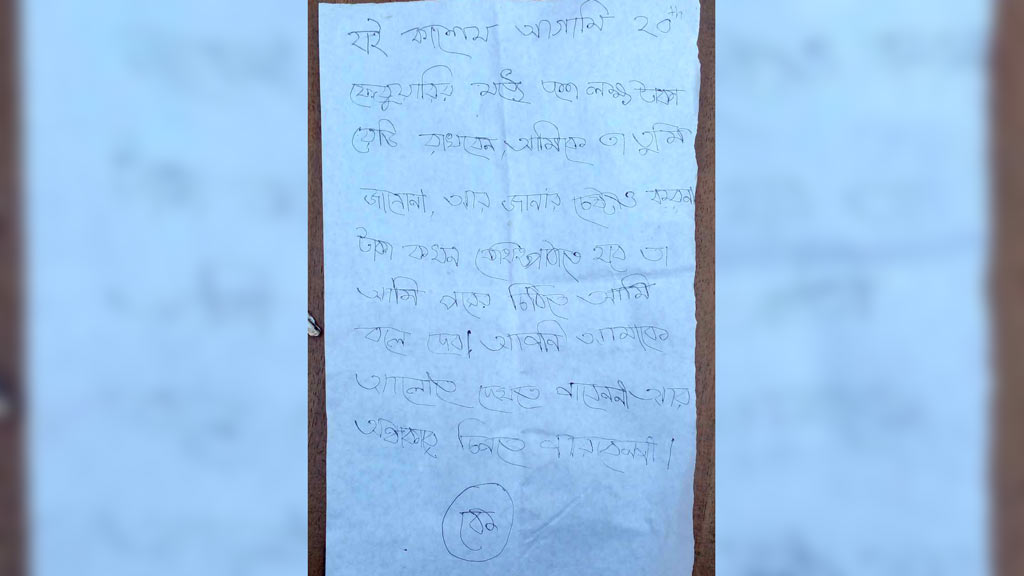 যাই কাশেম আগামি ২০th
ফেব্রুয়ারির মধ্যে দশ লক্ষ টাকা
রেডি রাখবেন, আমিকে তা তুমি
জানোনা, আর জানার চেষ্টাও করবনা
টাকা কখন কোথায় পাঠাতে হবে তা
আমি পরের চিঠিতে আমি
বলে দেব। আপনি আমাকে
আলোতে দেখতে পাবেননা আর
অন্ধকারে চিনতে পারবেননা।